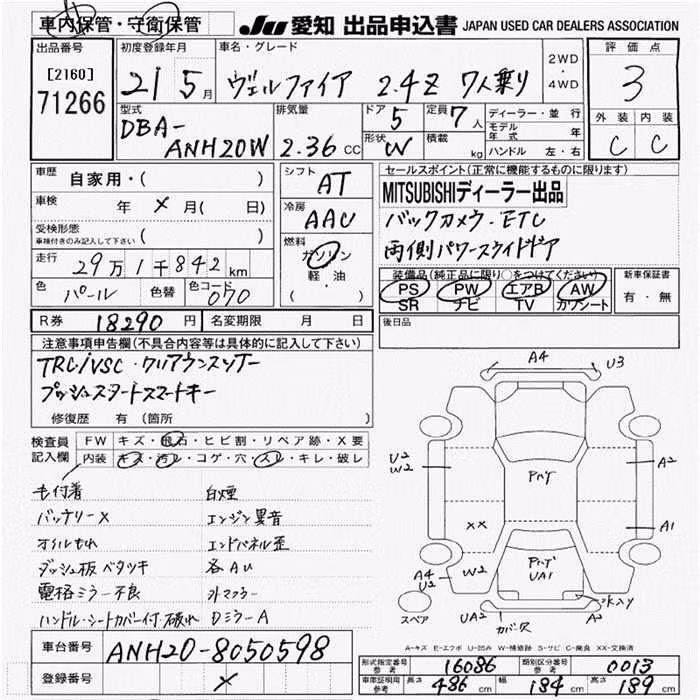 車内保管・守衛保管
JU 愛知 出品申込書 JAPAN USED CAR DEALERS ASSOCIATION
出品番号
[2160]
71266
初度登録年月
21 5月
車名・グレード
ヴェルファイア 2.4Z 7人乗り
2WD・4WD
評価点
3
外装 内装
C C
型式
DBA-
ANH20W
排気量
2.36 CC
ドア 5
形状 W
定員 7人
積載 kg
ディーラー・並行
モデル年式 年
ハンドル 左・右
車歴 自家用・( )
車検 年 × 月( 日)
受検形態
車検付きのみ記入して下さい ( )
走行 29万1千842km
色 パール 色替 色コード 070
シフト AT
冷房 AAC
燃料
ガソリン
軽・油
( )
セールスポイント(正常に機能するものに限ります)
MITSUBISHIディーラー出品
バックカメラ・ETC
両側パワースライドドア
装備品(純正品に限り○をつけてください)
PS PW エアB AW
SR ナビ TV カワシート
新車保証書
有・無
後日品
R券 18290円 名変期限 月 日
注意事項申告欄(不具合内容等は具体的に記入して下さい)
TRC/VSC・クリアランスソナー
プッシュスタートスマートキー
修復歴 有(箇所 )
検査員記入欄
FW キズ・飛石・ヒビ割・リペア跡・X要
内装 キズ・汚レ・コゲ・穴・スレ・キレ・破レ
毛付着 白煙
バッテリーX エンジン異音
オイルもれ エンドパネル歪
ダッシュ板ベタツキ 各AU
電格ミラー不良 外マフラー
ハンドル・シートカバー付・破れ DミラーA
車台番号 ANH20-8050598
登録番号 ×
A4
U3
U2
W2
Pハゲ
A2
XX
A1
A4
U
W2
Pハゲ
UA1
UA2
カバー欠
A2
スペア
A-キズ E-エクボ U-凹み W-補修跡 S-サビ C-腐食 XX-交換済
形式指定番号 参考 16086
類別区分番号 参考 0013
車庫証明用 参考 長さ 486cm 幅 184cm 高さ 189cm